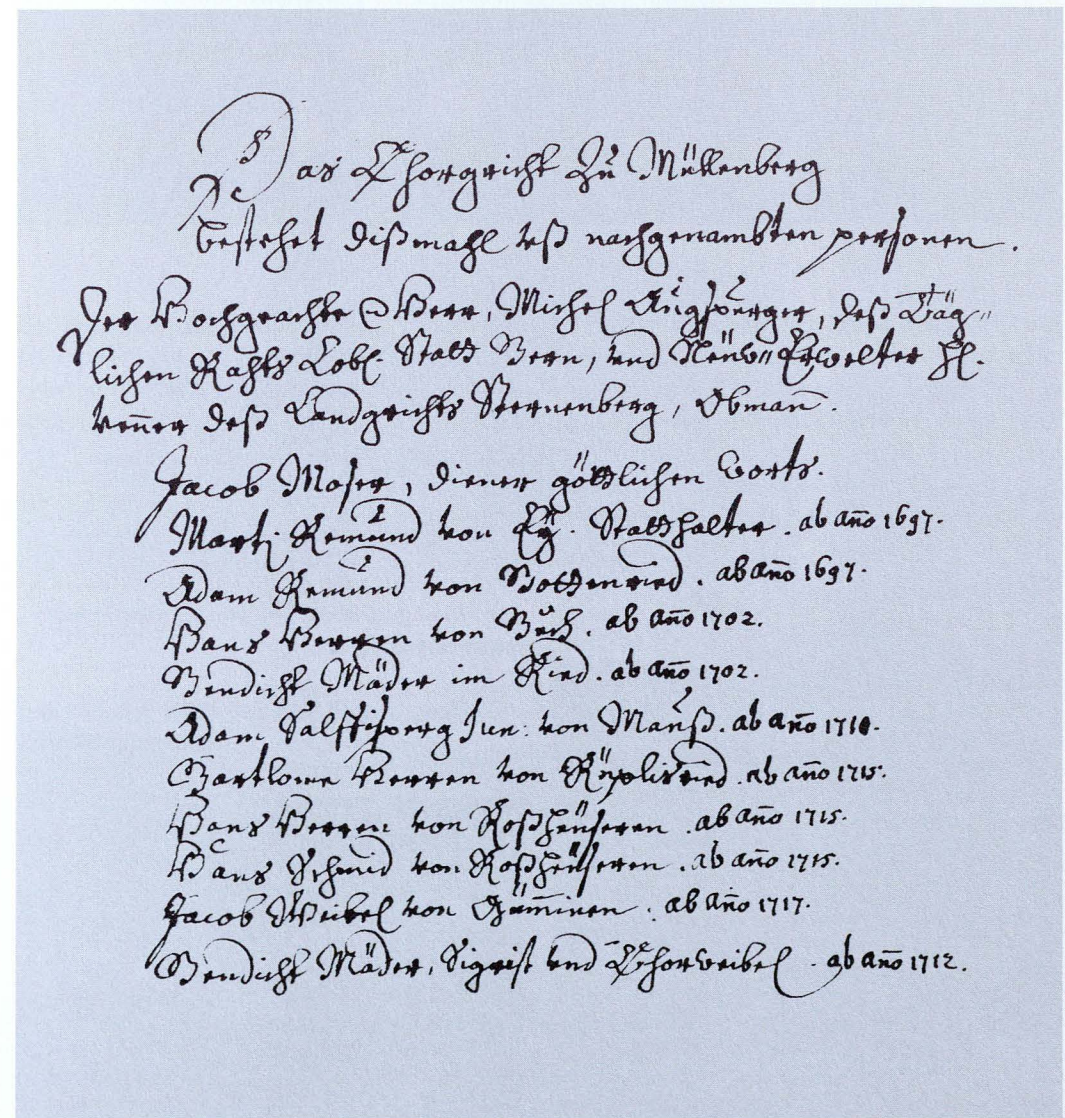 Das Chorgricht Zu Müllenberg
bestehet dißmahl uß nachgenambten personen.
Der Hochgeachte Herr, Michel Augspurger, deß Täg„
lichen Rahts Lobl. Statt Bern, und Neüw„ Erwelter H.
Venner deß Landgrichts Sternenberg, Obman̄.
Jacob Moser, diener göttlichen Worts.
Marti Remund von Ey. Statthalter. ab año 1697.
Adam Remund von Bottenried. ab año 1697.
Hans Herren von Buch. ab año 1702.
Bendicht Mäder im Ried. ab año 1702.
Adam Salffisperg Jun: von Mauß. ab año 1710.
Bartlome Herren von Rüplisried. ab año 1715.
Hans Herren von Roßheüseren. ab año 1715.
Hans Schmid von Roßheüseren. ab año 1715.
Jacob Weibel von Güm̄inen. ab año 1717.
Bendicht Mäder, Sigrist und Chorweibel. ab año 1712.